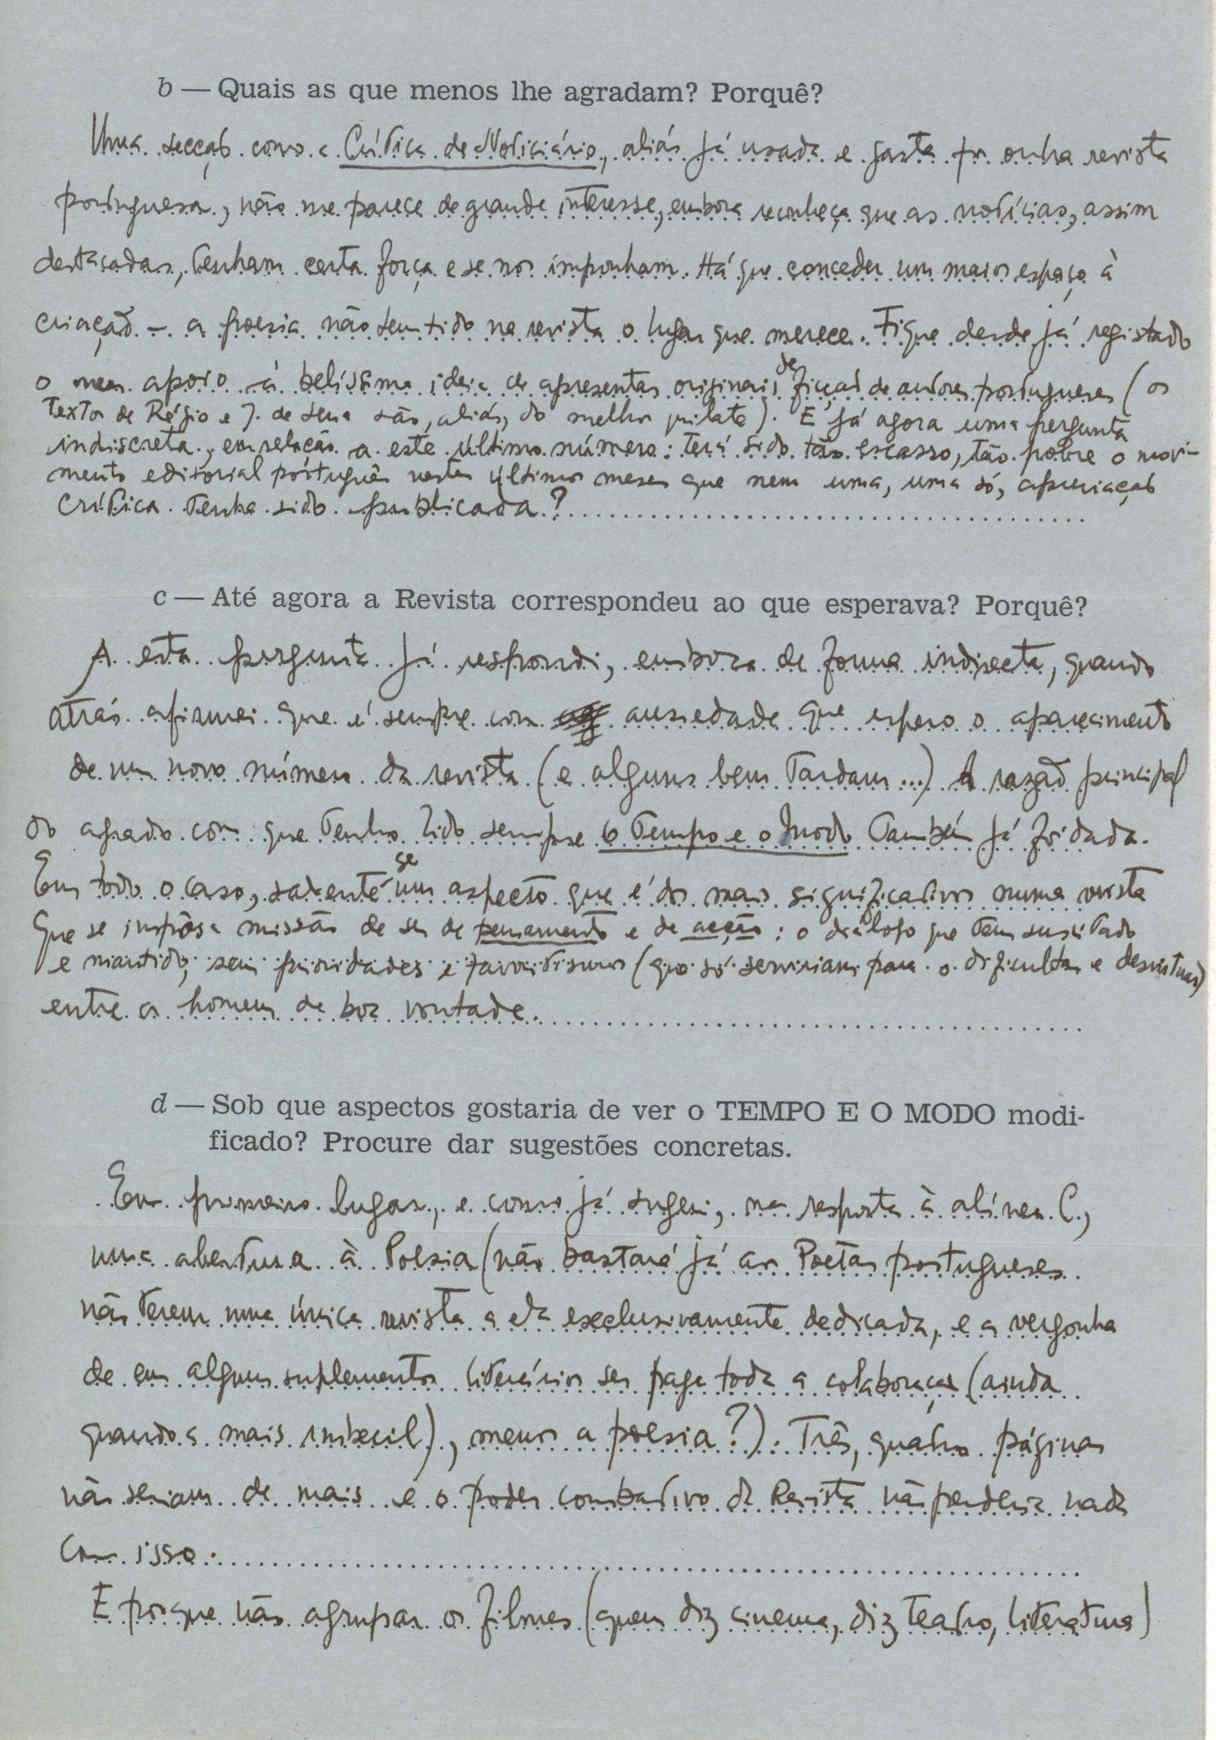 b — Quais as que menos lhe agradam? Porquê?
Uma secção como a Crítica de Noticiário, aliás já usada e gasta por outra revista
portuguesa, não me parece de grande interesse, embora reconheça que as notícias, assim
destacadas, tenham certa força e se nos imponham. Há que conceder um maior espaço à
criação — a poesia não tem tido na revista o lugar que merece. Fique desde já registado
o meu apoio à belíssima ideia de apresentar originais de ficção de autores portugueses (os
textos de Régio e J. de Sena são, aliás, do melhor quilate). E já agora uma pergunta
indiscreta, em relação a este último número: terá sido tão escasso, tão pobre o movi-
mento editorial português nestes últimos meses que nem uma, uma só, apreciação
crítica tenha sido publicada?
c — Até agora a Revista correspondeu ao que esperava? Porquê?
A esta pergunta já respondi, embora de forma indirecta, quando
atrás afirmei que é sempre com ansiedade que espero o aparecimento
de um novo número da revista (e alguns bem tardam...) A razão principal
do agrado com que tenho lido sempre O Tempo e o Modo também já foi dada.
Em todo o caso, saliente-se um aspecto que é dos mais significativos numa revista
que se impôs a missão de ser de pensamento e de acção: o diálogo que tem suscitado
e mantido, sem prioridades e favoritismos (que só serviriam para o dificultar e desvirtuar)
entre os homens de boa vontade.
d — Sob que aspectos gostaria de ver o TEMPO E O MODO modi-
ficado? Procure dar sugestões concretas.
Em primeiro lugar, e como já sugeri, na resposta à alínea C,
uma abertura à Poesia (não bastará já aos Poetas portugueses
não terem uma única revista a ela exclusivamente dedicada, e a vergonha
de em alguns suplementos literários ser paga toda a colaboração (ainda
quando a mais imbecil), menos a poesia?). Três, quatro páginas
não seriam de mais e o poder combativo da Revista não perderia nada
com isso.
E porque não agrupar os filmes (quem diz cinema, diz teatro, literatura)